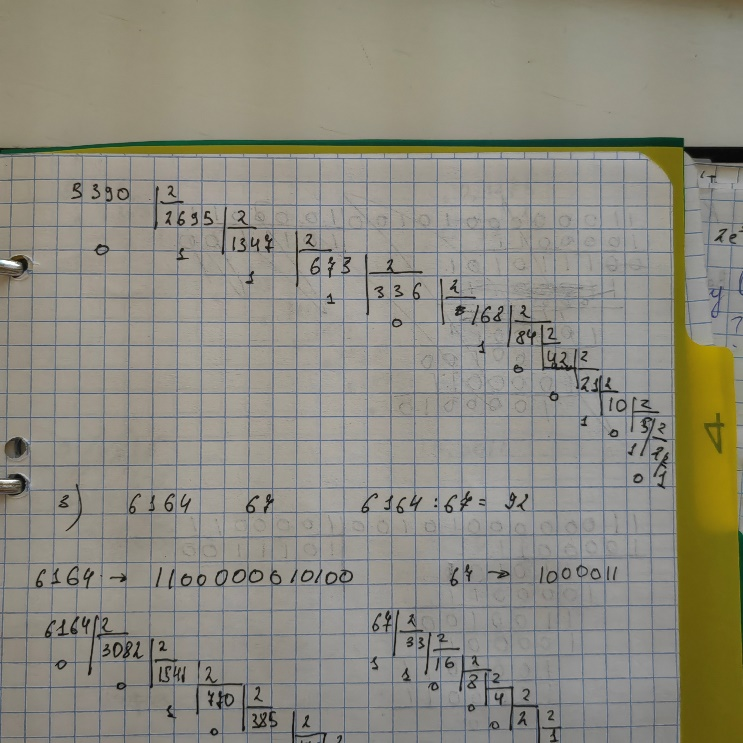 5390 2
2695 2
0 1 1347 2
1 673 2
1 336 2
0 168 2
1 84 2
0 42 2
0 21 2
1 10 2
0 5 2
1
0 1
3) 6164 67 6164 : 67 = 92
6164 → 1100000010100 67 → 1000011
6164 2 67 2
3082 2 33 2
0 1541 2 1 16 2
0 770 2 1 8 2
1 385 2 0 4 2
0 2 0 2 2
0 1
4
2e
y